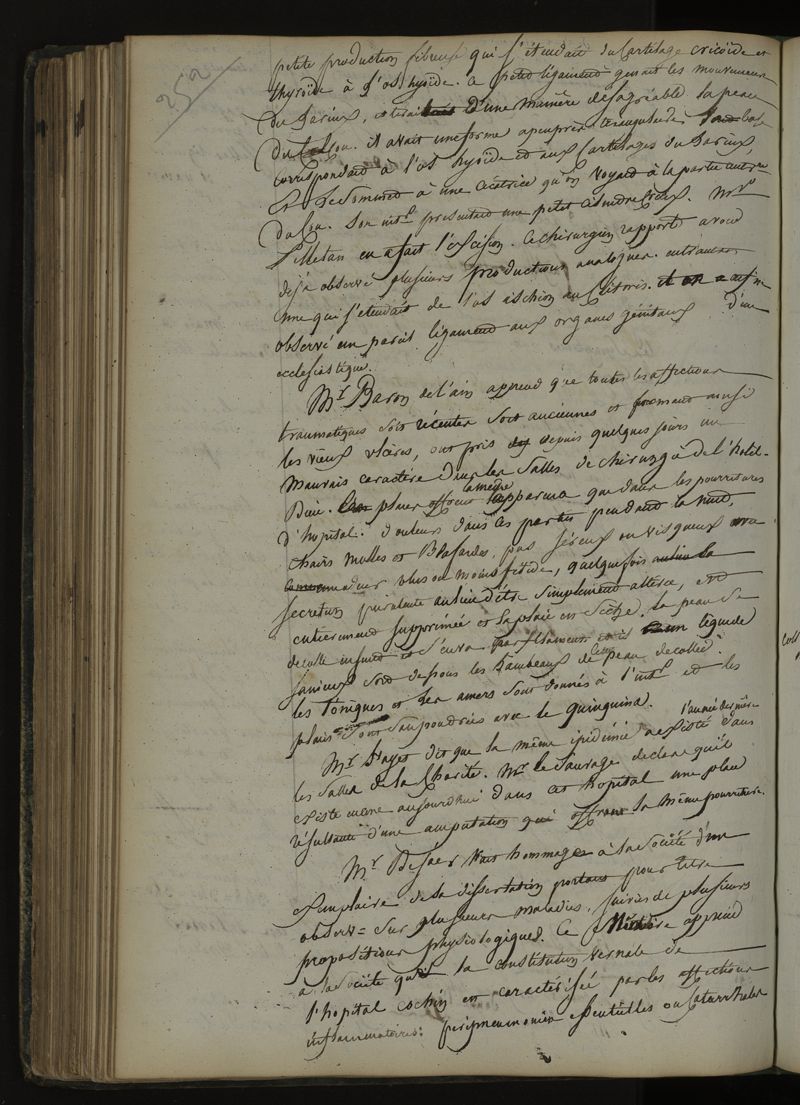 252
petite production fibreuse qui s'étendait du Cartilage cricoïde et
thyroïde à l'os hyoïde. Ce petit ligament gênait les mouvemens
du Larinx, et tirait d'une manière désagréable la peau
du Col. il avait une forme apeuprès triangulaire; sa base
correspondait à l'os hyoïde et aux Cartilages du Larinx,
et le sommet à une cicatrice qu'on voyait à la partie antre
du Cou. Son intr présentait une petit cilindre. Mr
Pelletan en a fait l'excision. Ce chirurgien rapporte avoir
déjà observé plusieurs productions analogues. entrautres
une qui s'étendait de l'os ischion au Clitoris. il en a aussi
observé un pareil ligament aux organes génitaux d'un
ecclésiastique.
Mr Baron de l'ain apprend que toutes les affections
traumatiques soit récentes soit anciennes et formant ainsi
les vieux ulcères, ont pris depuis quelques jours un
mauvais caractère dans les Salles de chirurgie de l'hotel-
Dieu. Les plaies offrent la même apparence que dans les pourritures
d'hopital. Douleurs dans les parties pendant la nuit,
chairs molles et Blafardes, pus séreux ou visqueux
odeur plus ou moins fétide, quelquefois
secretion purulente au lieu d'être simplement altérée, est
entierement supprimée et la plaie est sèche. la peau se
décolle ensuite et s'en va par filamens et il un liquide
sanieux sort dessous les Lambeaux de cette peau décollée.
les Toniques et les amers sont donnés à l'intr et les
plaies sont saupoudrées avec le quinquina.
Mr Hayet dit que la même épidémie a existé l'année dernière dans
les Salles de la Charité. Mr le Sauvage déclare qu'il
existe encore aujourdhui dans cet hopital une plaie
résultante d'une amputation qui offrant la même pourriture.
Mr fait hommage à la Société d'un
Exemplaire de sa dissertation portant pour titre
observ= sur plusieurs maladies, suivies de plusieurs
propositions physiologiques. Ce Membre apprend
à la Société que la constitution vernale de
l'hopital cochin est caractérisée par les affections
inflammatoires: peripneumonies essentielles ou Catarrhales